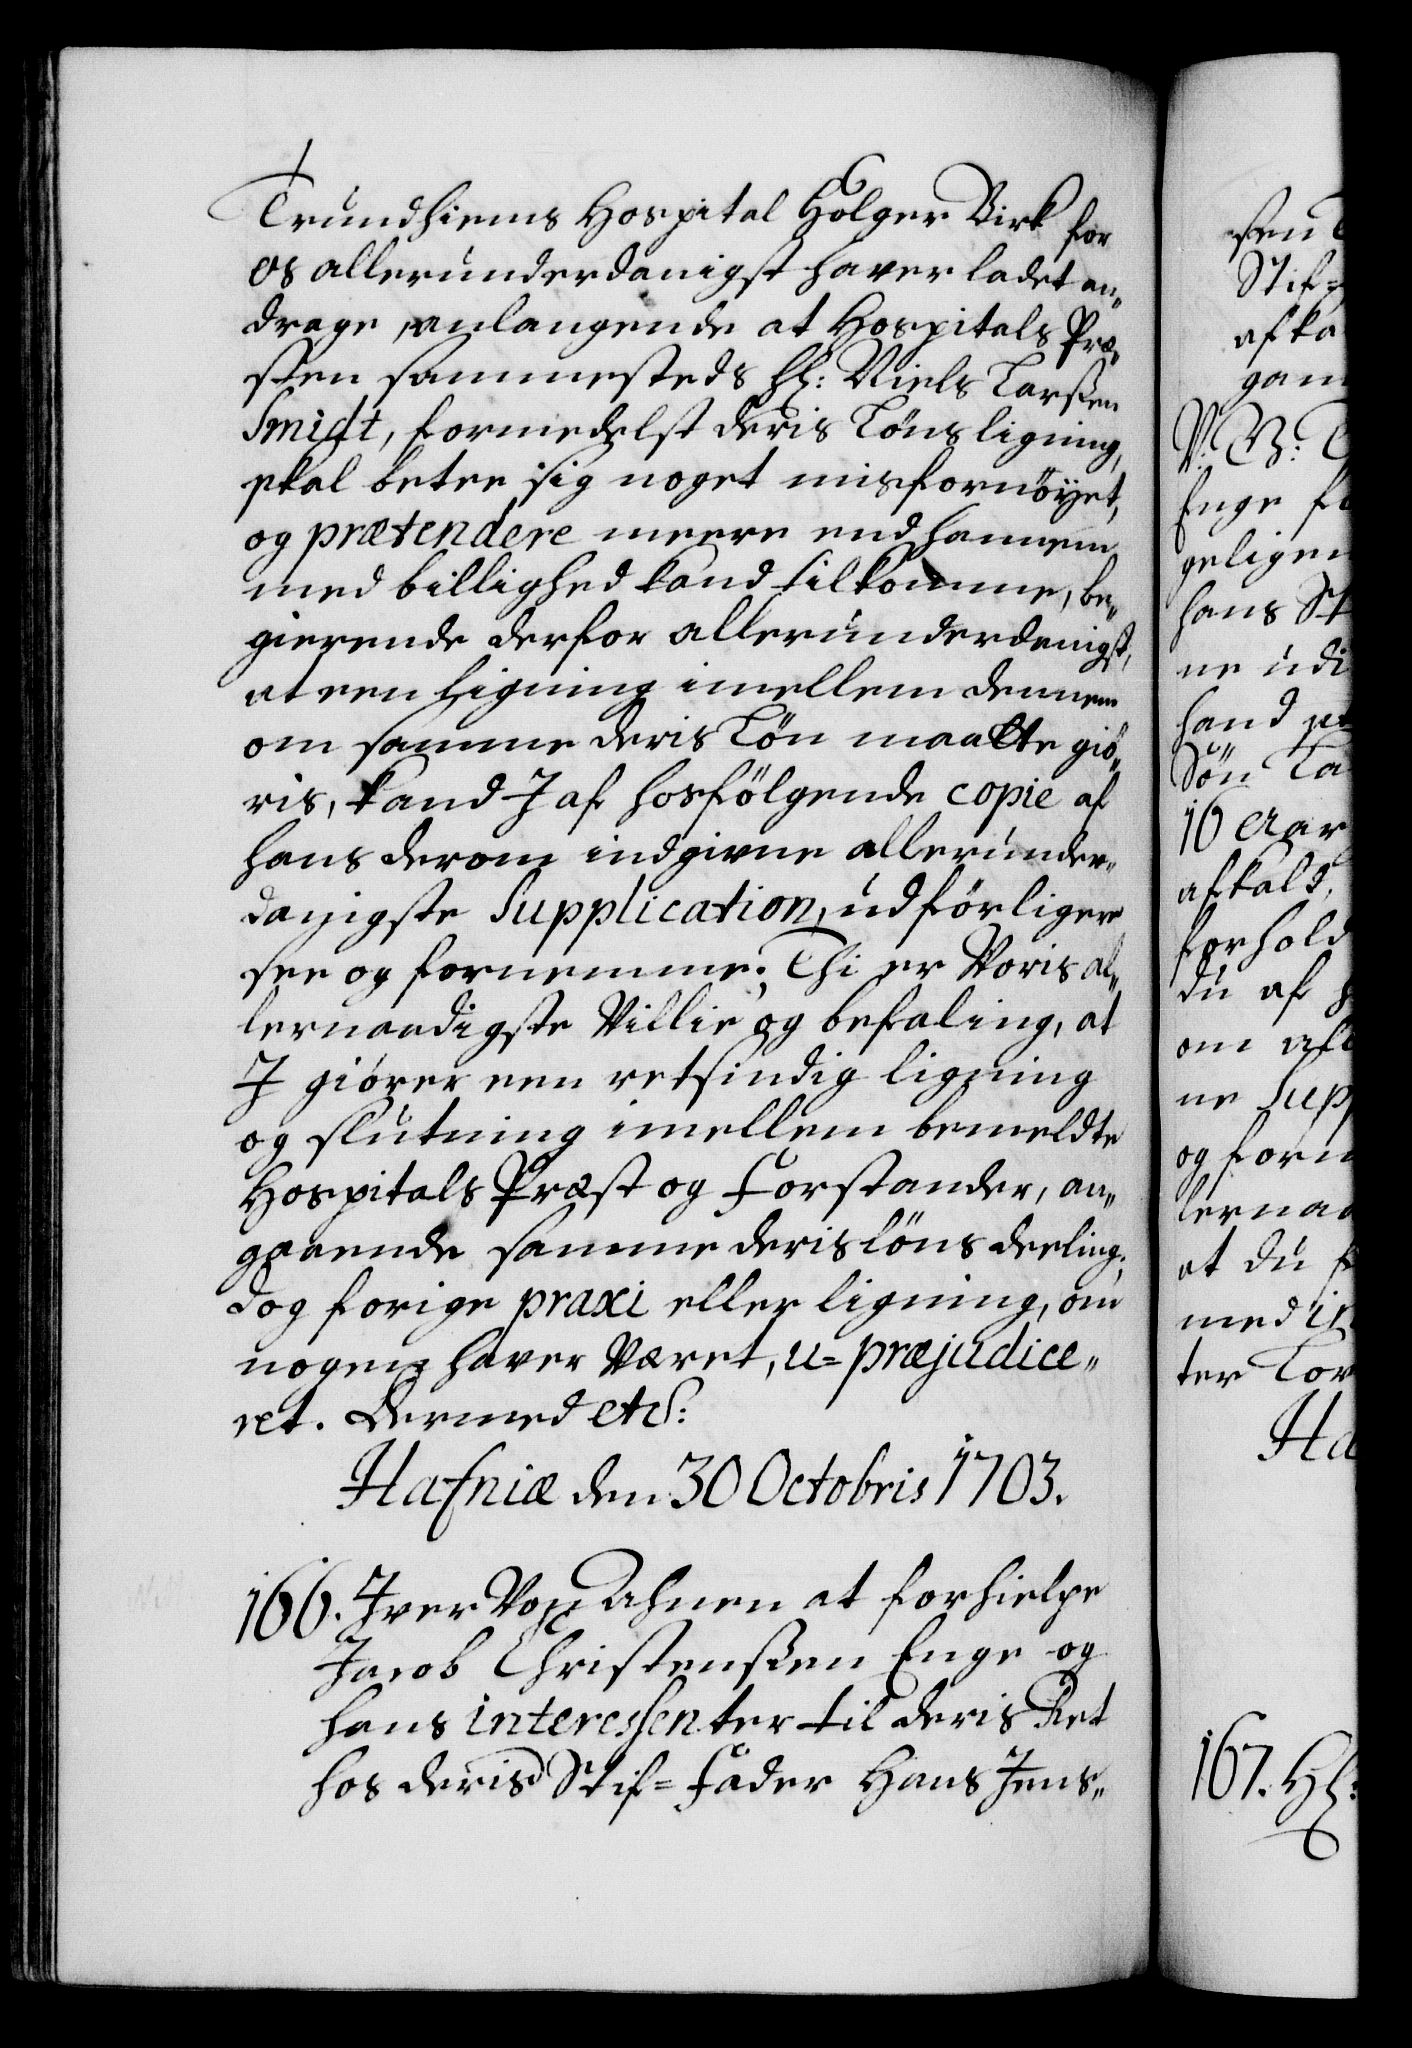 Trundhiems Hospital Holger Birk for
os allerunderdanigst haver ladet an„
drage, anlangende at Hospitals Præ„
sten sammesteds Hr: Niels Larßen
Smidt, formedelst deris Lönsligning,
skal betee sig noget misfornöyet,
og prætendere meere end hannem
med billighed kand tilkomme, be„
gierende derfor allerunderdanigst,
at een ligning imellem dennem
om samme deris Lön maatte giö„
ris, kand J af hosfölgende copie af
hans derom indgivne allerunder„
danigste Supplication, udförligere
see og fornemme; Thi er Voris al„
lernaadigste Villie og befaling, at
J giörer een retsindig ligning
og slutning imellem bemeldte
Hospitals Præst og Forstander, an„
gaaende samme deris löns deeling,
dog forige praxi eller ligning, om
nogen haver Været, u=præjudice„
ret. Dermed etc:
Hafniæ den 30 Octobris 1703.
166. Jver Von Ahnen at forhielpe
Jacob Christenßen Enge og
hans interessenter til deris Ret
hos deris Stif=Fader Hans Jens„
sen
Stif=
afka
gam
V. G: T
Enge f
geligen
hans St
ne udi
hand
Sön La
16 Aar
afkald,
forhold
du af
om
ne Supp
og forn
lernaa
at du
med
ter Lov
Ha
167. Hr: